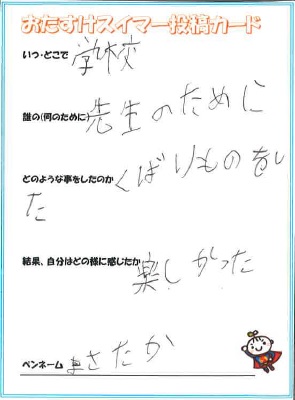 おたすけスイマー投稿カード
いつ・どこで 学校
誰の(何のために) 先生のために
どのような事をしたのか くばりものをし
た
結果、自分はどの様に感じたか 楽しかった
ペンネーム まさたか